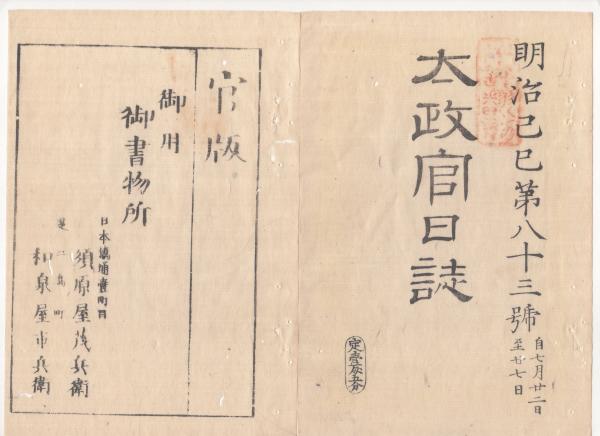 明治己巳第八十三號
自七月廿二日
至廿七日
太政官日誌
官版
御用
御書物所
日本橋通壹町目
須原屋茂兵衛
芝三島町
和泉屋市兵衛